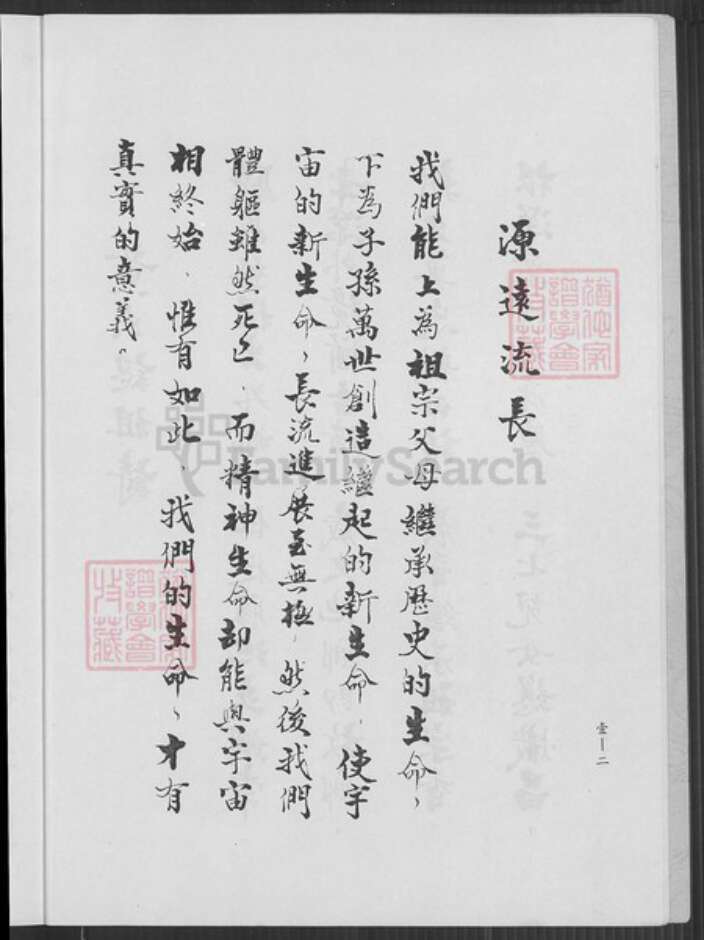 源遠流長
我們能上為祖宗父母繼承歷史的生命，
下為子孫萬世創造繼起的新生命，使宇
宙的新生命，長流進展至無極，然後我們
體軀雖然死亡，而精神生命却能與宇宙
相終始，惟有如此，我們的生命，才有
真實的意義。
壹-二
FamilySearch
譜學會
收藏
譜學會
收藏